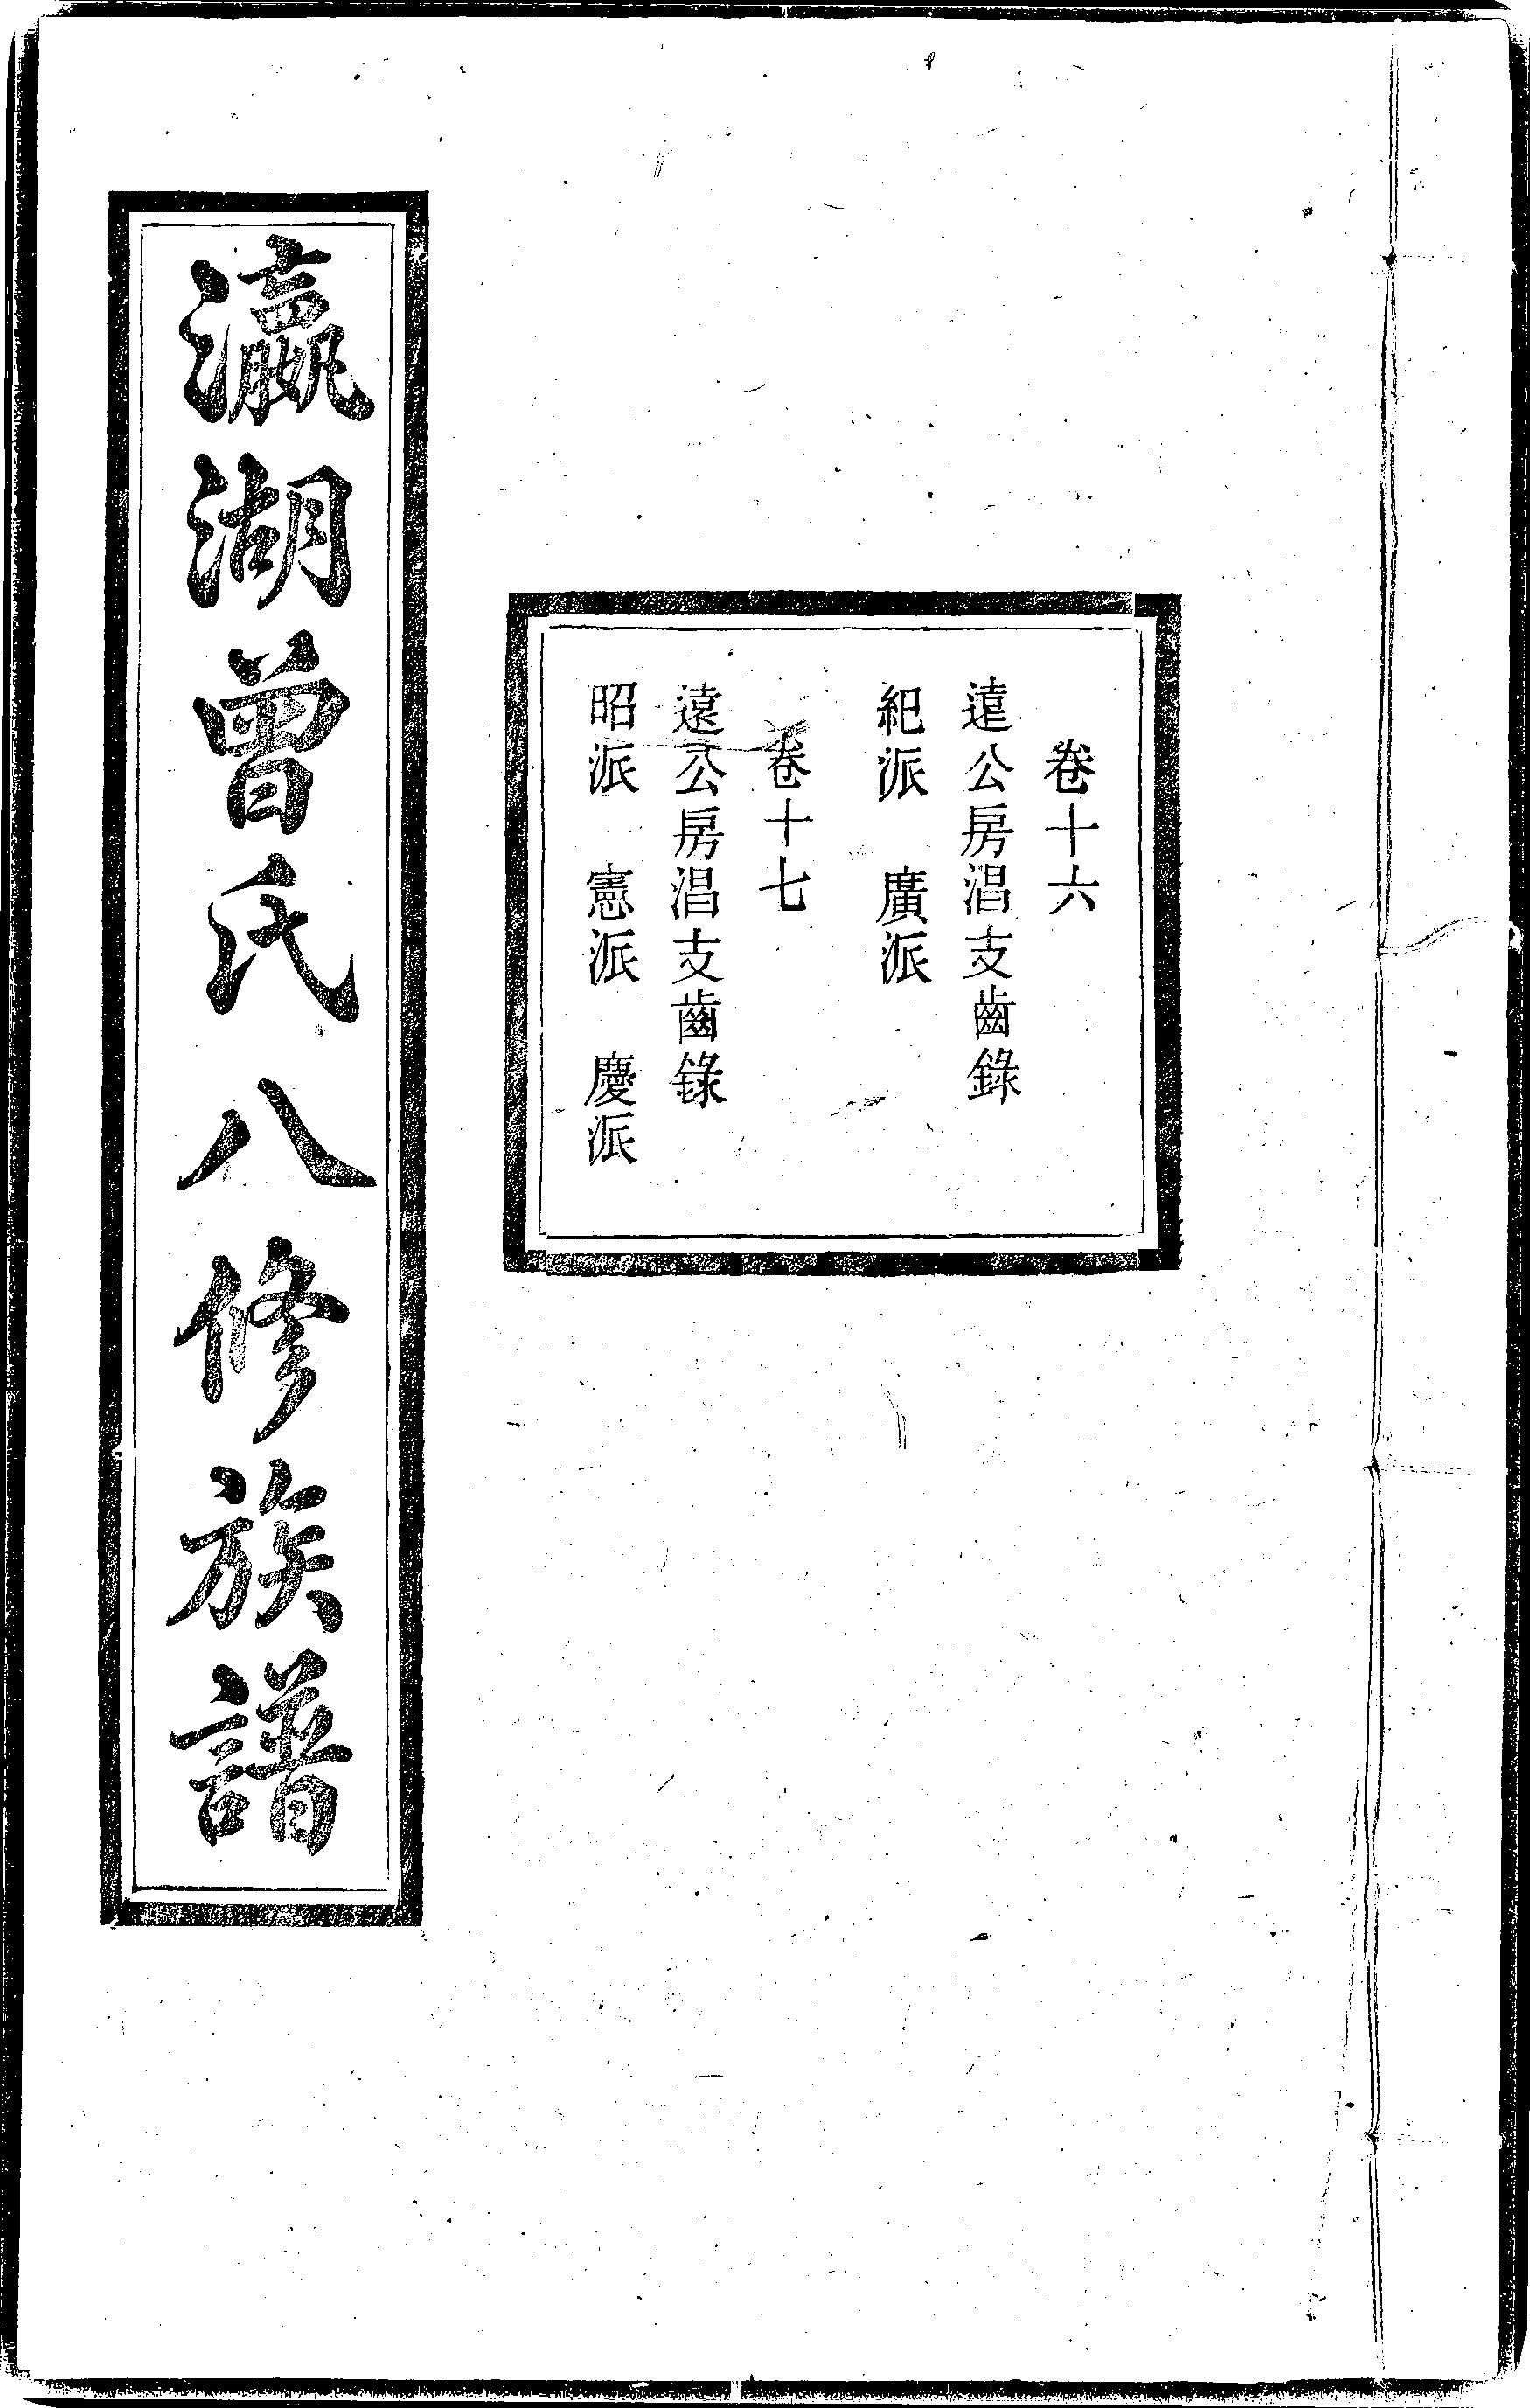 卷十六
遠公房淐支齒錄
紀派　廣派
卷十七
遠公房淐支齒錄
昭派　憲派　慶派
瀛湖曾氏八修族譜